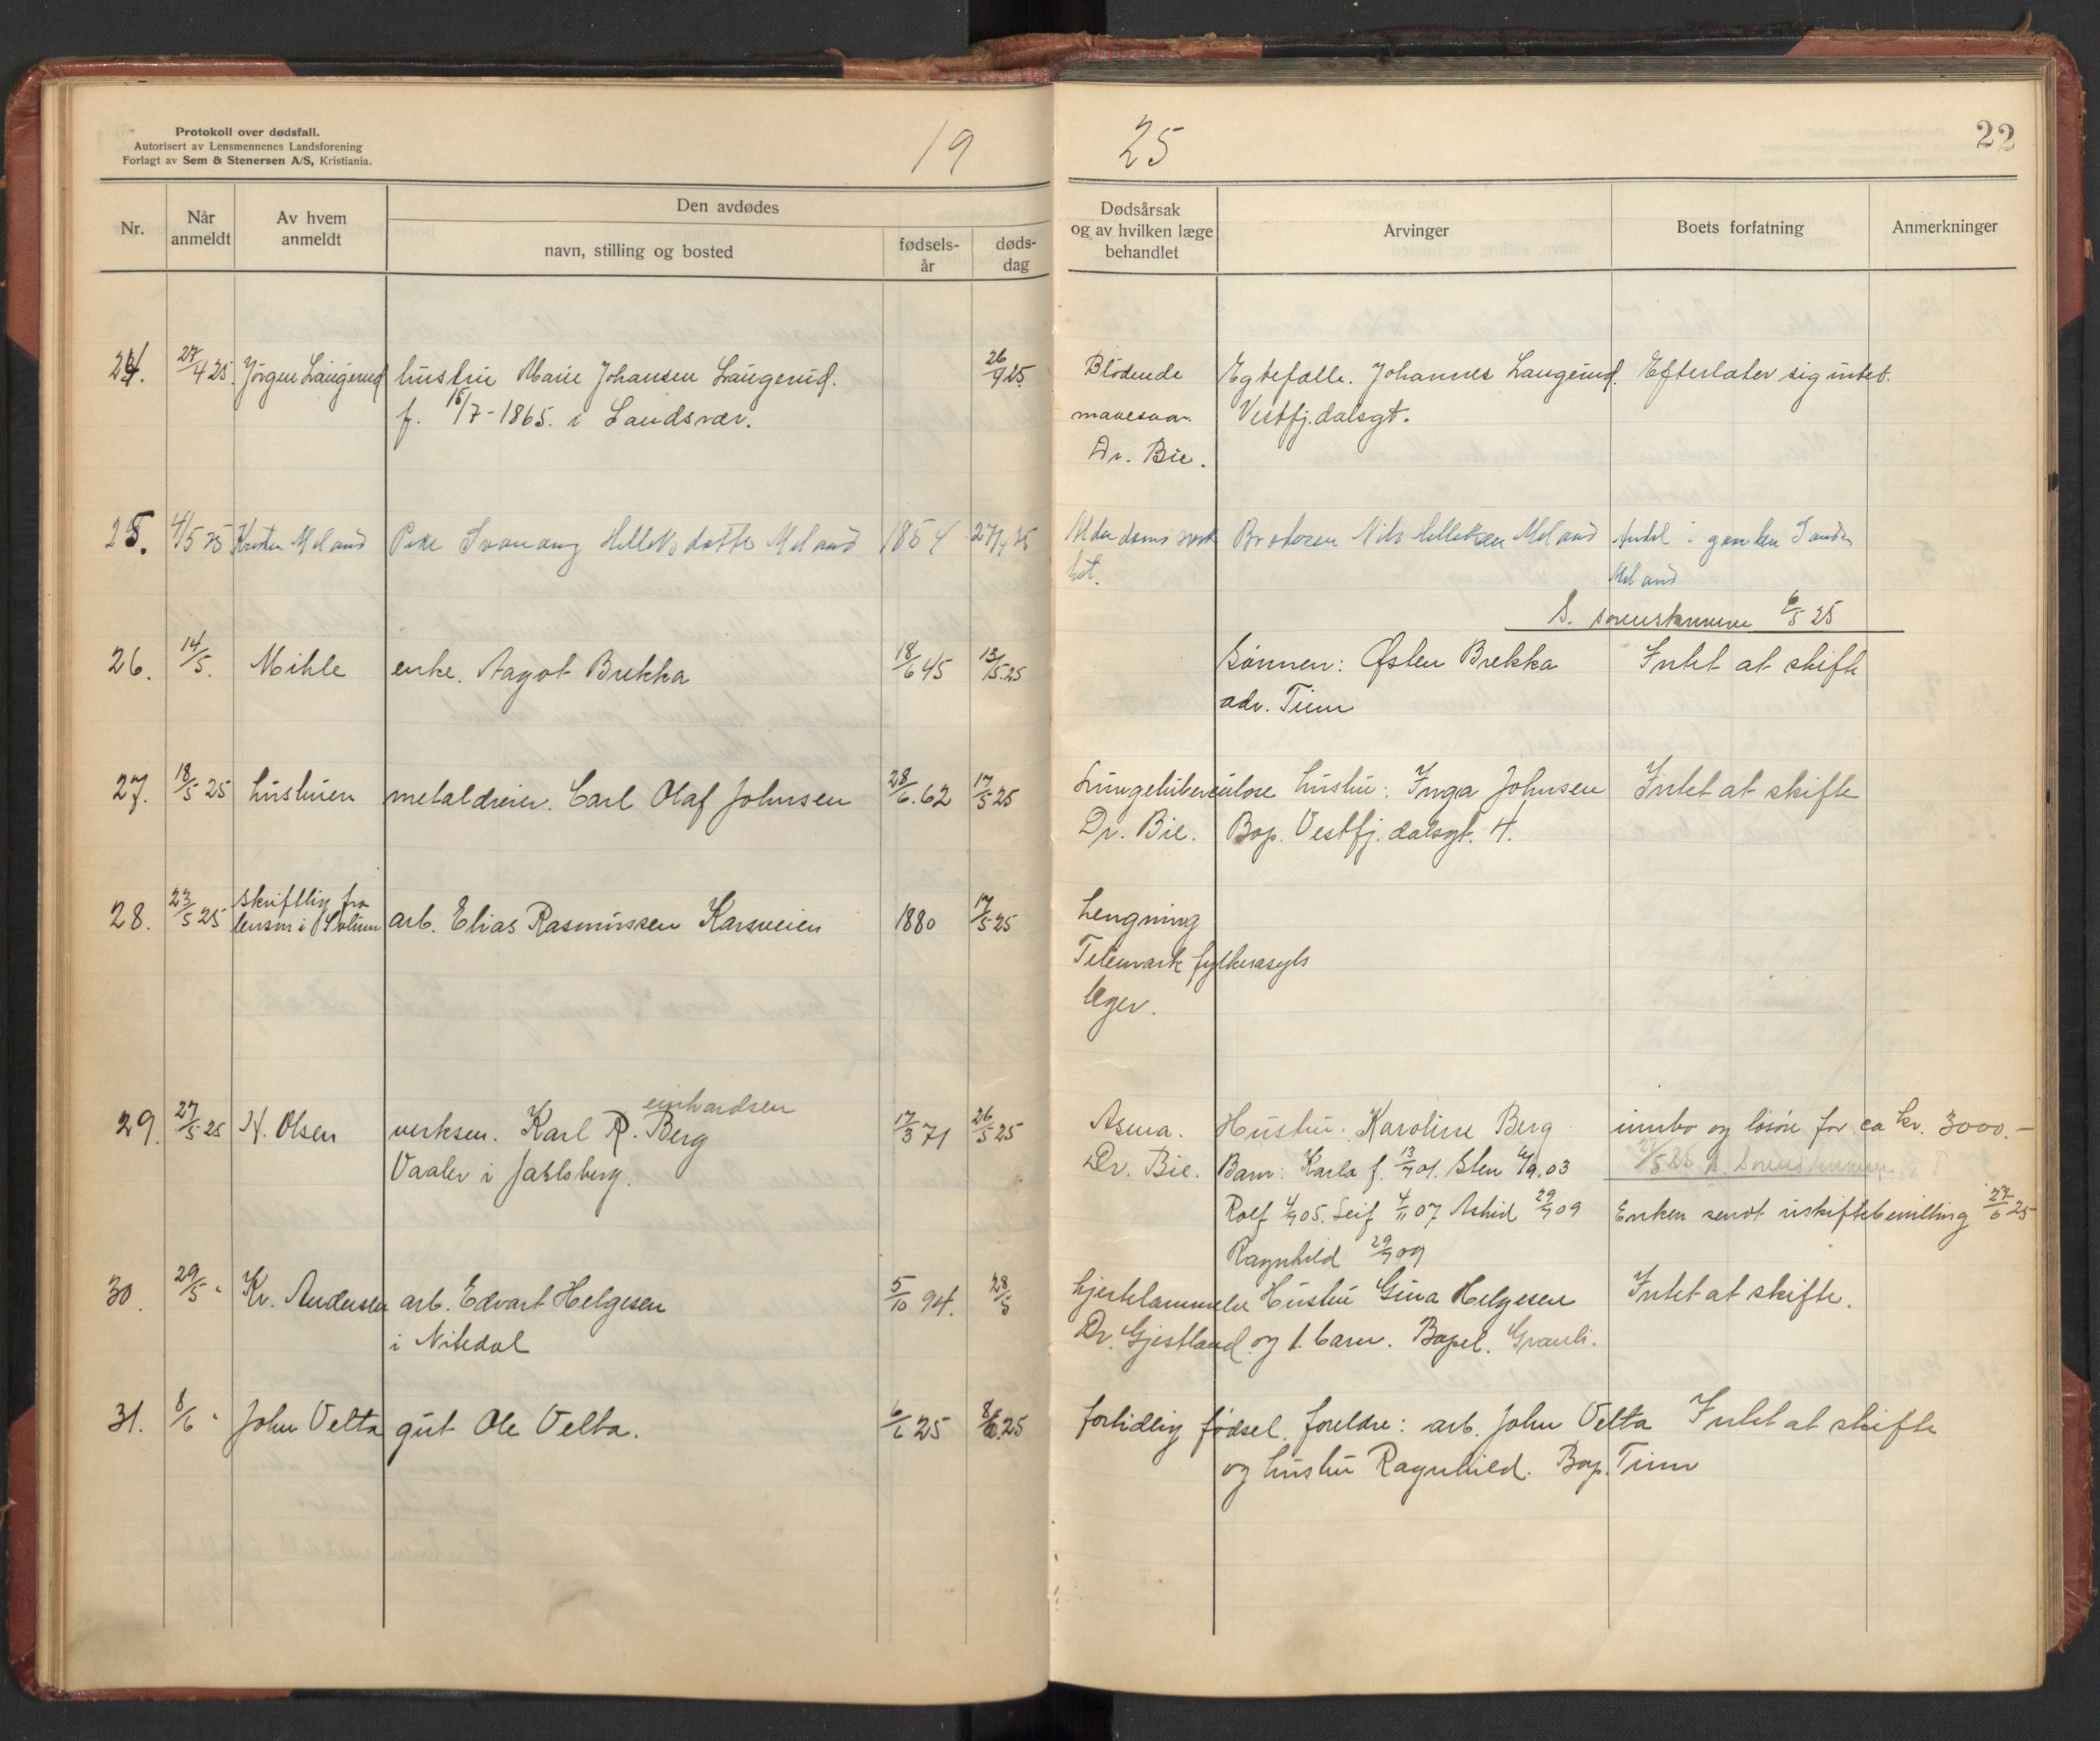 Protokoll over dødsfall.
Autorisert av Lensmennenes Landsforening
Forlagt av Sem & Stenersen A/S, Kristiania.
19 25
22
Nr.
Når anmeldt
Av hvem anmeldt
Den avdødes
navn, stilling og bosted
fødsels-år
døds-dag
Dødsårsak og av hvilken læge behandlet
Arvinger
Boets forfatning
Anmerkninger
24. 27/4 25. Jörgen Laugerud hustru Marie Johansen Laugerud. 26/4 25 Blödende Egtefælle. Johannes Laugerud. Efterlater sig intet.
f. 15/7-1865. i Sandsvær. mavesaar. Vestfj.dalsgt.
Dr. Bie.
25. 4/5 25 Kristen Meland Pike Svanaug Helleksdatter Meland 1854 27/4 25 Alderdomssvak Broderen Nils Helleksen Meland Andel i garden
het. Meland
S. sorenskriveren 6/5 25
26. 14/5. Mihle enke. Aagot Brekka 18/6 45 13/5.25 Sönnen: Østen Brekka Intet at skifte
adr. Tinn
27. 18/5 25 hustruen metaldreier. Carl Olaf Johnsen 28/6.62 17/5 25 Lungetuberculose hustru: Inga Johnsen Intet at skifte
Dr. Bie. Bop. Vestfj.dalsgt. 4.
28. 23/5 25 skriftlig fra
lensm i Solum arb. Elias Rasmussen Karsveien 1880 17/5 25 hengning
Telemark fylkesasyls
læger.
einhardsen
29. 27/5 25 N. Olsen verksm. Karl R. Berg 17/3 71 26/5 25 Asma. Hustru. Karoline Berg innbo og lösöre for ca kr. 3000.-
Vaaler i Jarlsberg. Dr. Bie. Barn: Karla f. 13/7 01. Sten 6/9.03 27/5 25 S. Sorenskriveren
Rolf 4/9 05. Leif 4/11 07 Astrid 29/7 09 Enken sendt uskiftebevilling 27/6 25
Ragnhild 29/7 09
30. 29/5 " Kr. Andersen arb. Edvart Helgesen 5/10 94. 28/5 hjertelammelse Hustru Gina Helgesen Intet at skifte.
i Nitedal Dr. Gjestland. og 1. barn. Bopel. Grauli.
31. 8/6 " John Velta gut Ole Velta. 6/6 25 8/6.25 fortidlig födsel. foreldre: arb. John Velta Intet at skifte
og hustru Ragnhild. Bop. Tinn